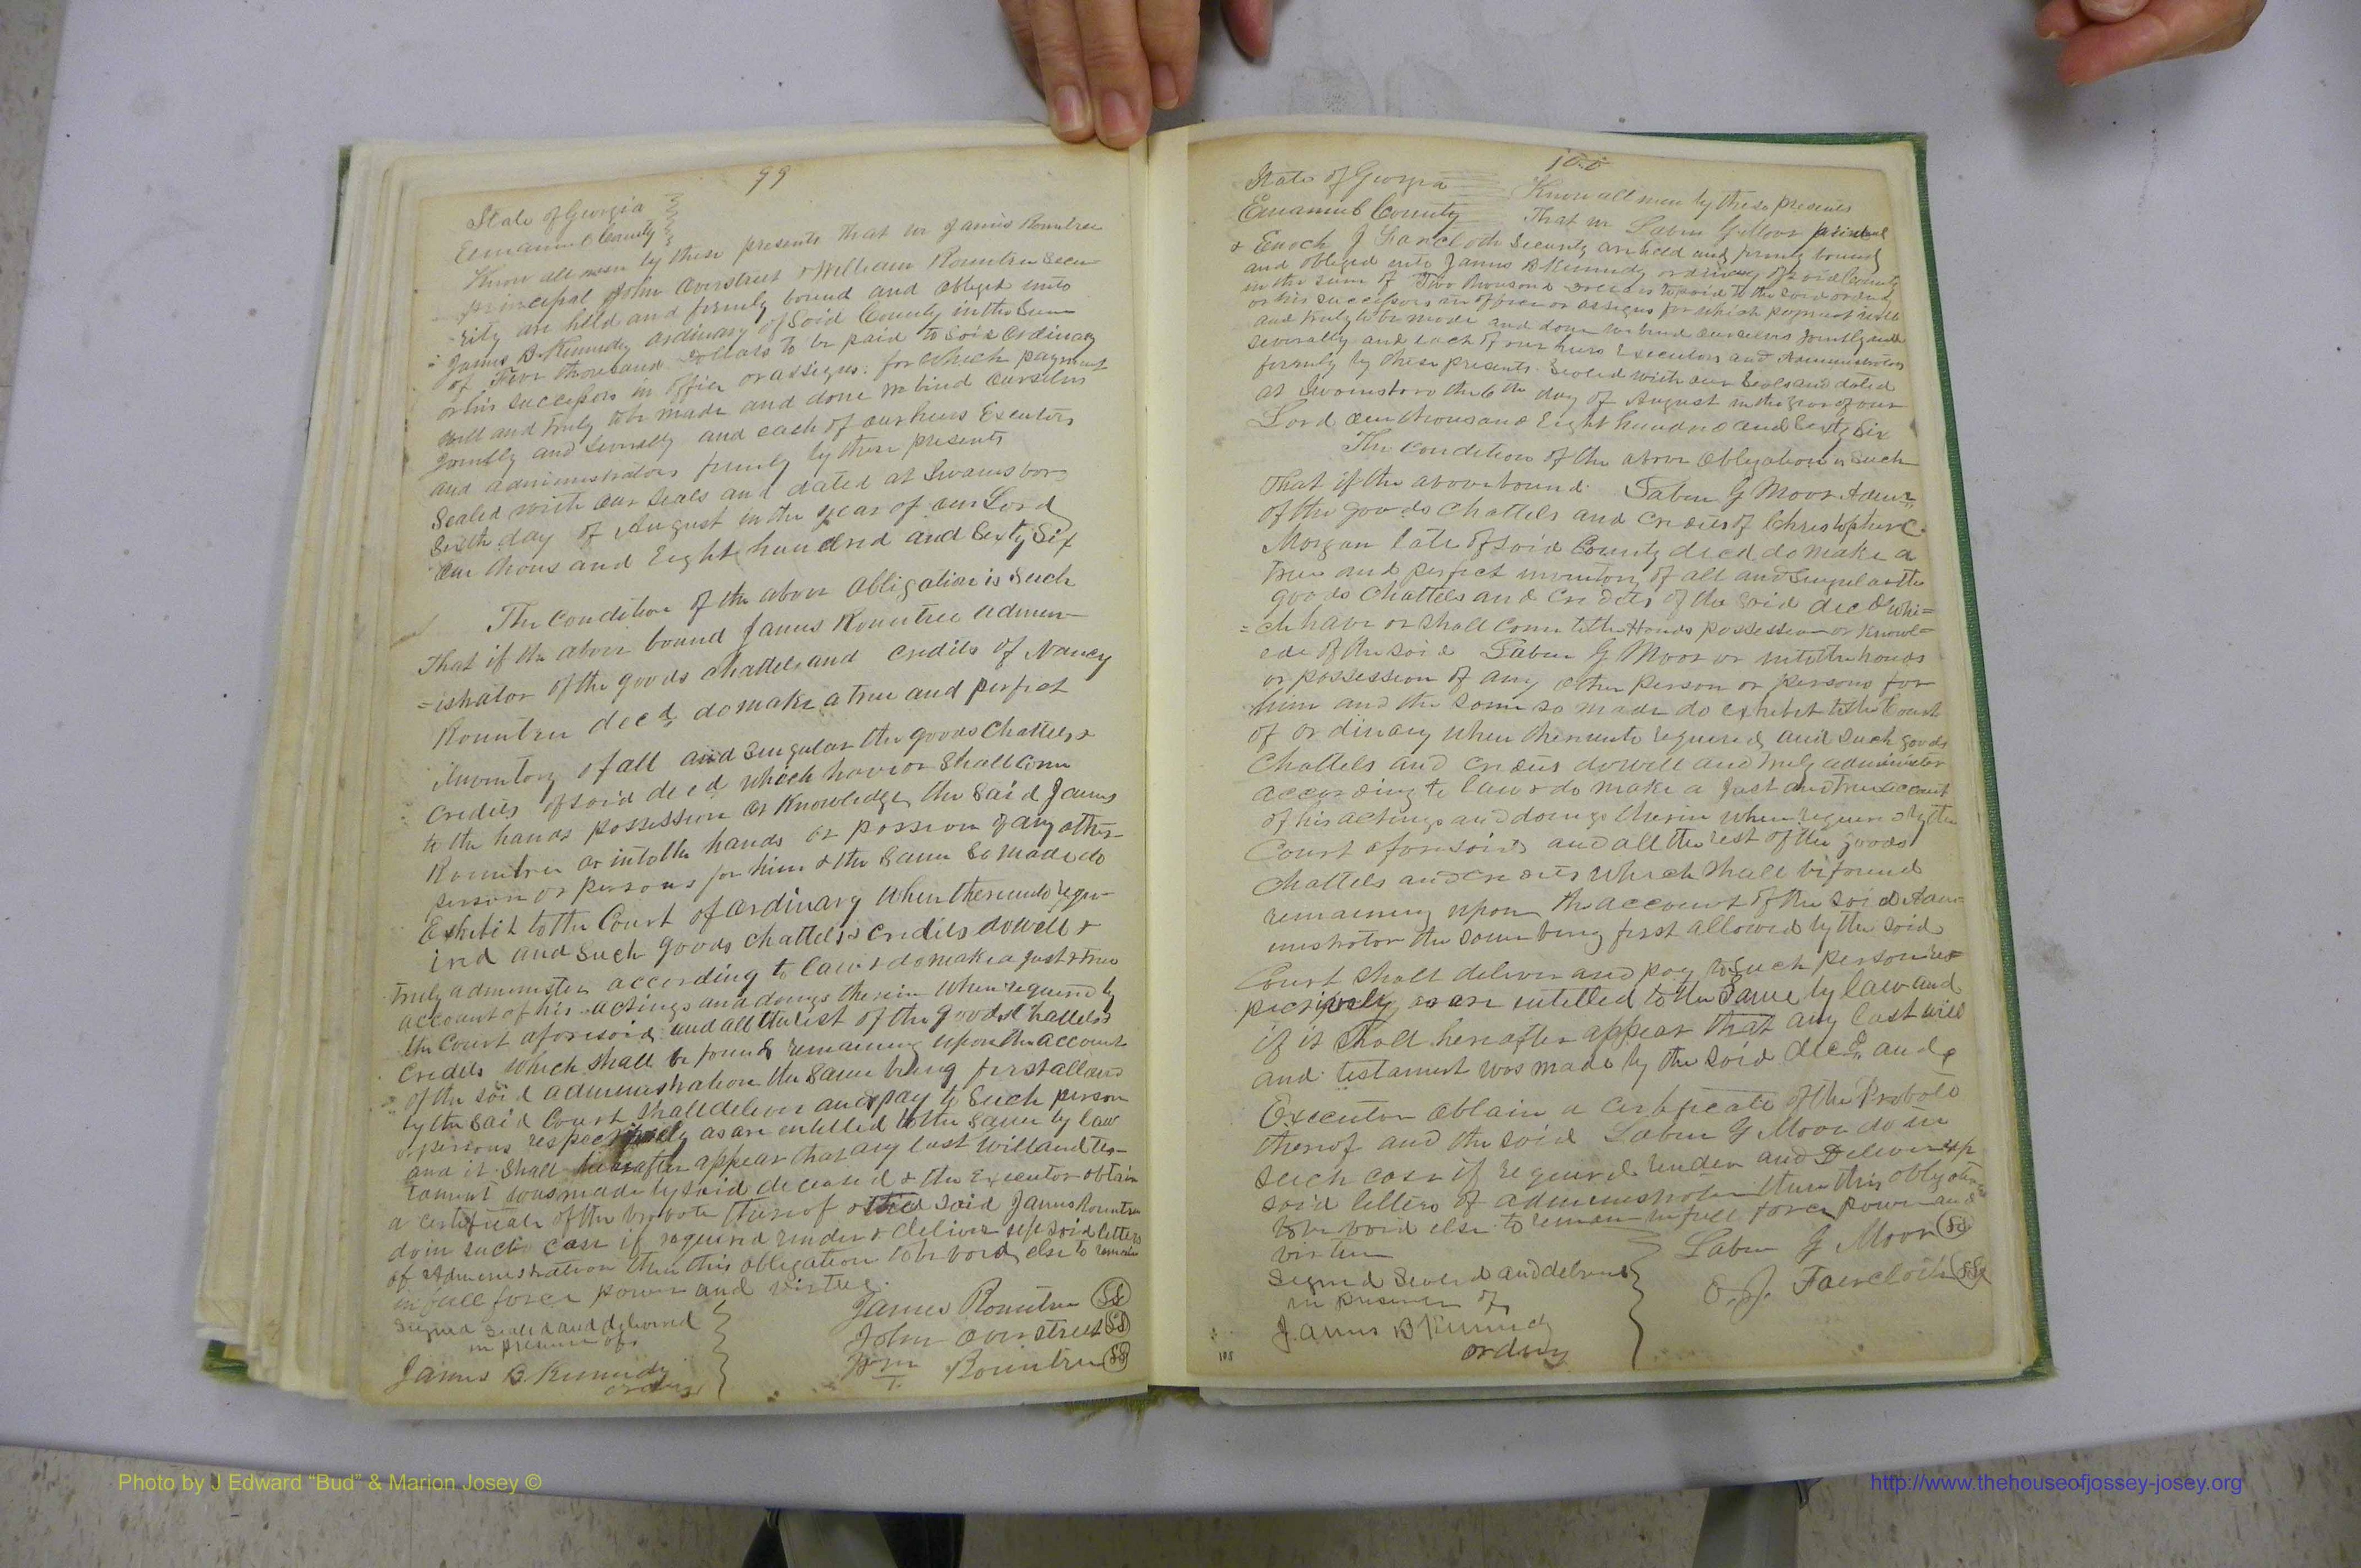 99
State of Georgia
Emanuel County
Know all men by these presents that we James Rountree
principal John Overstreet & William Rountree Secu-
rity are held and firmly bound and obliged unto
James B. Kennedy ordinary of Said County in the Sum
of Five thousand Dollars to be paid to Said Ordinary
or his successors in office or assigns. for which payment
well and truly to be made and done we bind ourselves
Jointly and Severally and each of our heirs Executors
and administrators firmly by these presents
Sealed with our Seals and dated at Swainsboro
Sixth day of August in the year of our Lord
One thousand Eight hundred and Sixty Six
The Condition of the above Obligation is Such
That if the above bound James Rountree admin-
=istrator of the goods chattels and credits of Nancy
Rountree decd, do make a true and perfect
Inventory of all and Singular the goods Chattels &
Credits of said decd which have or Shall Come
to the hands possession or Knowledge the Said James
Rountree or into the hands or possion of any other
person or persons for him & the Same So made do
Exhibit to the Court of ordinary When thereunto requ-
ired and Such goods chattels & credits do well &
Truly administer according to law & do make a just & true
account of his actings and doings therein When required by
the Court aforesaid and all the rest of the goods Chattels &
Credits which Shall be found remaining upon the account
of the said administration the Same being first allowed
by the Said Court Shall deliver and pay to Such person
or persons respectively as are entitled to the Same by law
and it Shall hereafter appear that any last Will and Tes-
tament was made by said deceased & the Executor obtain
a certificate of the probate thereof & the said James Rountree
do in such case if required render & deliver up said letters
of Administration then this obligation to be void, else to remain
in full force power and virtue.
Signed Sealed and delivered
in presence of
James B. Kennedy
ordinary
James Rountree SS
John Overstreet SS
Wm T. Rountree SS
100
State of Georgia
Emanuel County
Know all men by these presents
That we Laben G Moor
& Enoch J Faircloth Security are held and firmly bound
and obliged unto James B Kennedy ordinary of said County
in the Sum of Two thousand Dollars to paid to the said ordny
or his successors in office or assigns for which payment well
and truly to be made and done we bind ourselves Jointly and
severally and each of our heirs Executors and Administrators
firmly by these presents. Sealed with our Seals and dated
at Swainsboro the 6th day of August in the year of our
Lord one thousand Eight hundred and Sixty Six
The condition of the above Obligation is Such
That if the above bound Laben G Moor Admr
of the goods Chattels and credits of Christopher C.
Morgan late of said County decd do make a
true and perfect inventory of all and Singular the
goods Chattels and Credits of the said decd whi=
=ch have or shall come to the Hands possession or Knowl=
ede of the said Laben G Moor or into the hands
or possession of any other person or persons for
him and the same so made do exhibit to the Court
of ordinary when thereunto required, and such goods
Chattels and credits do well and truly administer
according to law & do make a just and true account
of his actings and doings therein when required by the
Court aforesaid and all the rest of the goods
Chattels and credits which shall be found
remaining upon the account of the said Adm-
inistrator the same being first allowed by the said
Court shall deliver and pay to such person res-
pectively as are entitled to the Same by law and
if it shall hereafter appear that any last will
and testament was made by the said decd and
Executor obtain a certificate of the Probate
thereof and the said Laben G Moor do in
such case if required render and Deliver up
said letters of administration then this obligation
to be void else to remain in full force power and
virtue
Signed Seald and deliverd
in presence of
James B Kennedy
ordny
Laben G Moor SS
E. J. Faircloth SS
Photo by J Edward “Bud” & Marion Josey ©
http://www.thehouseofjossey-josey.org